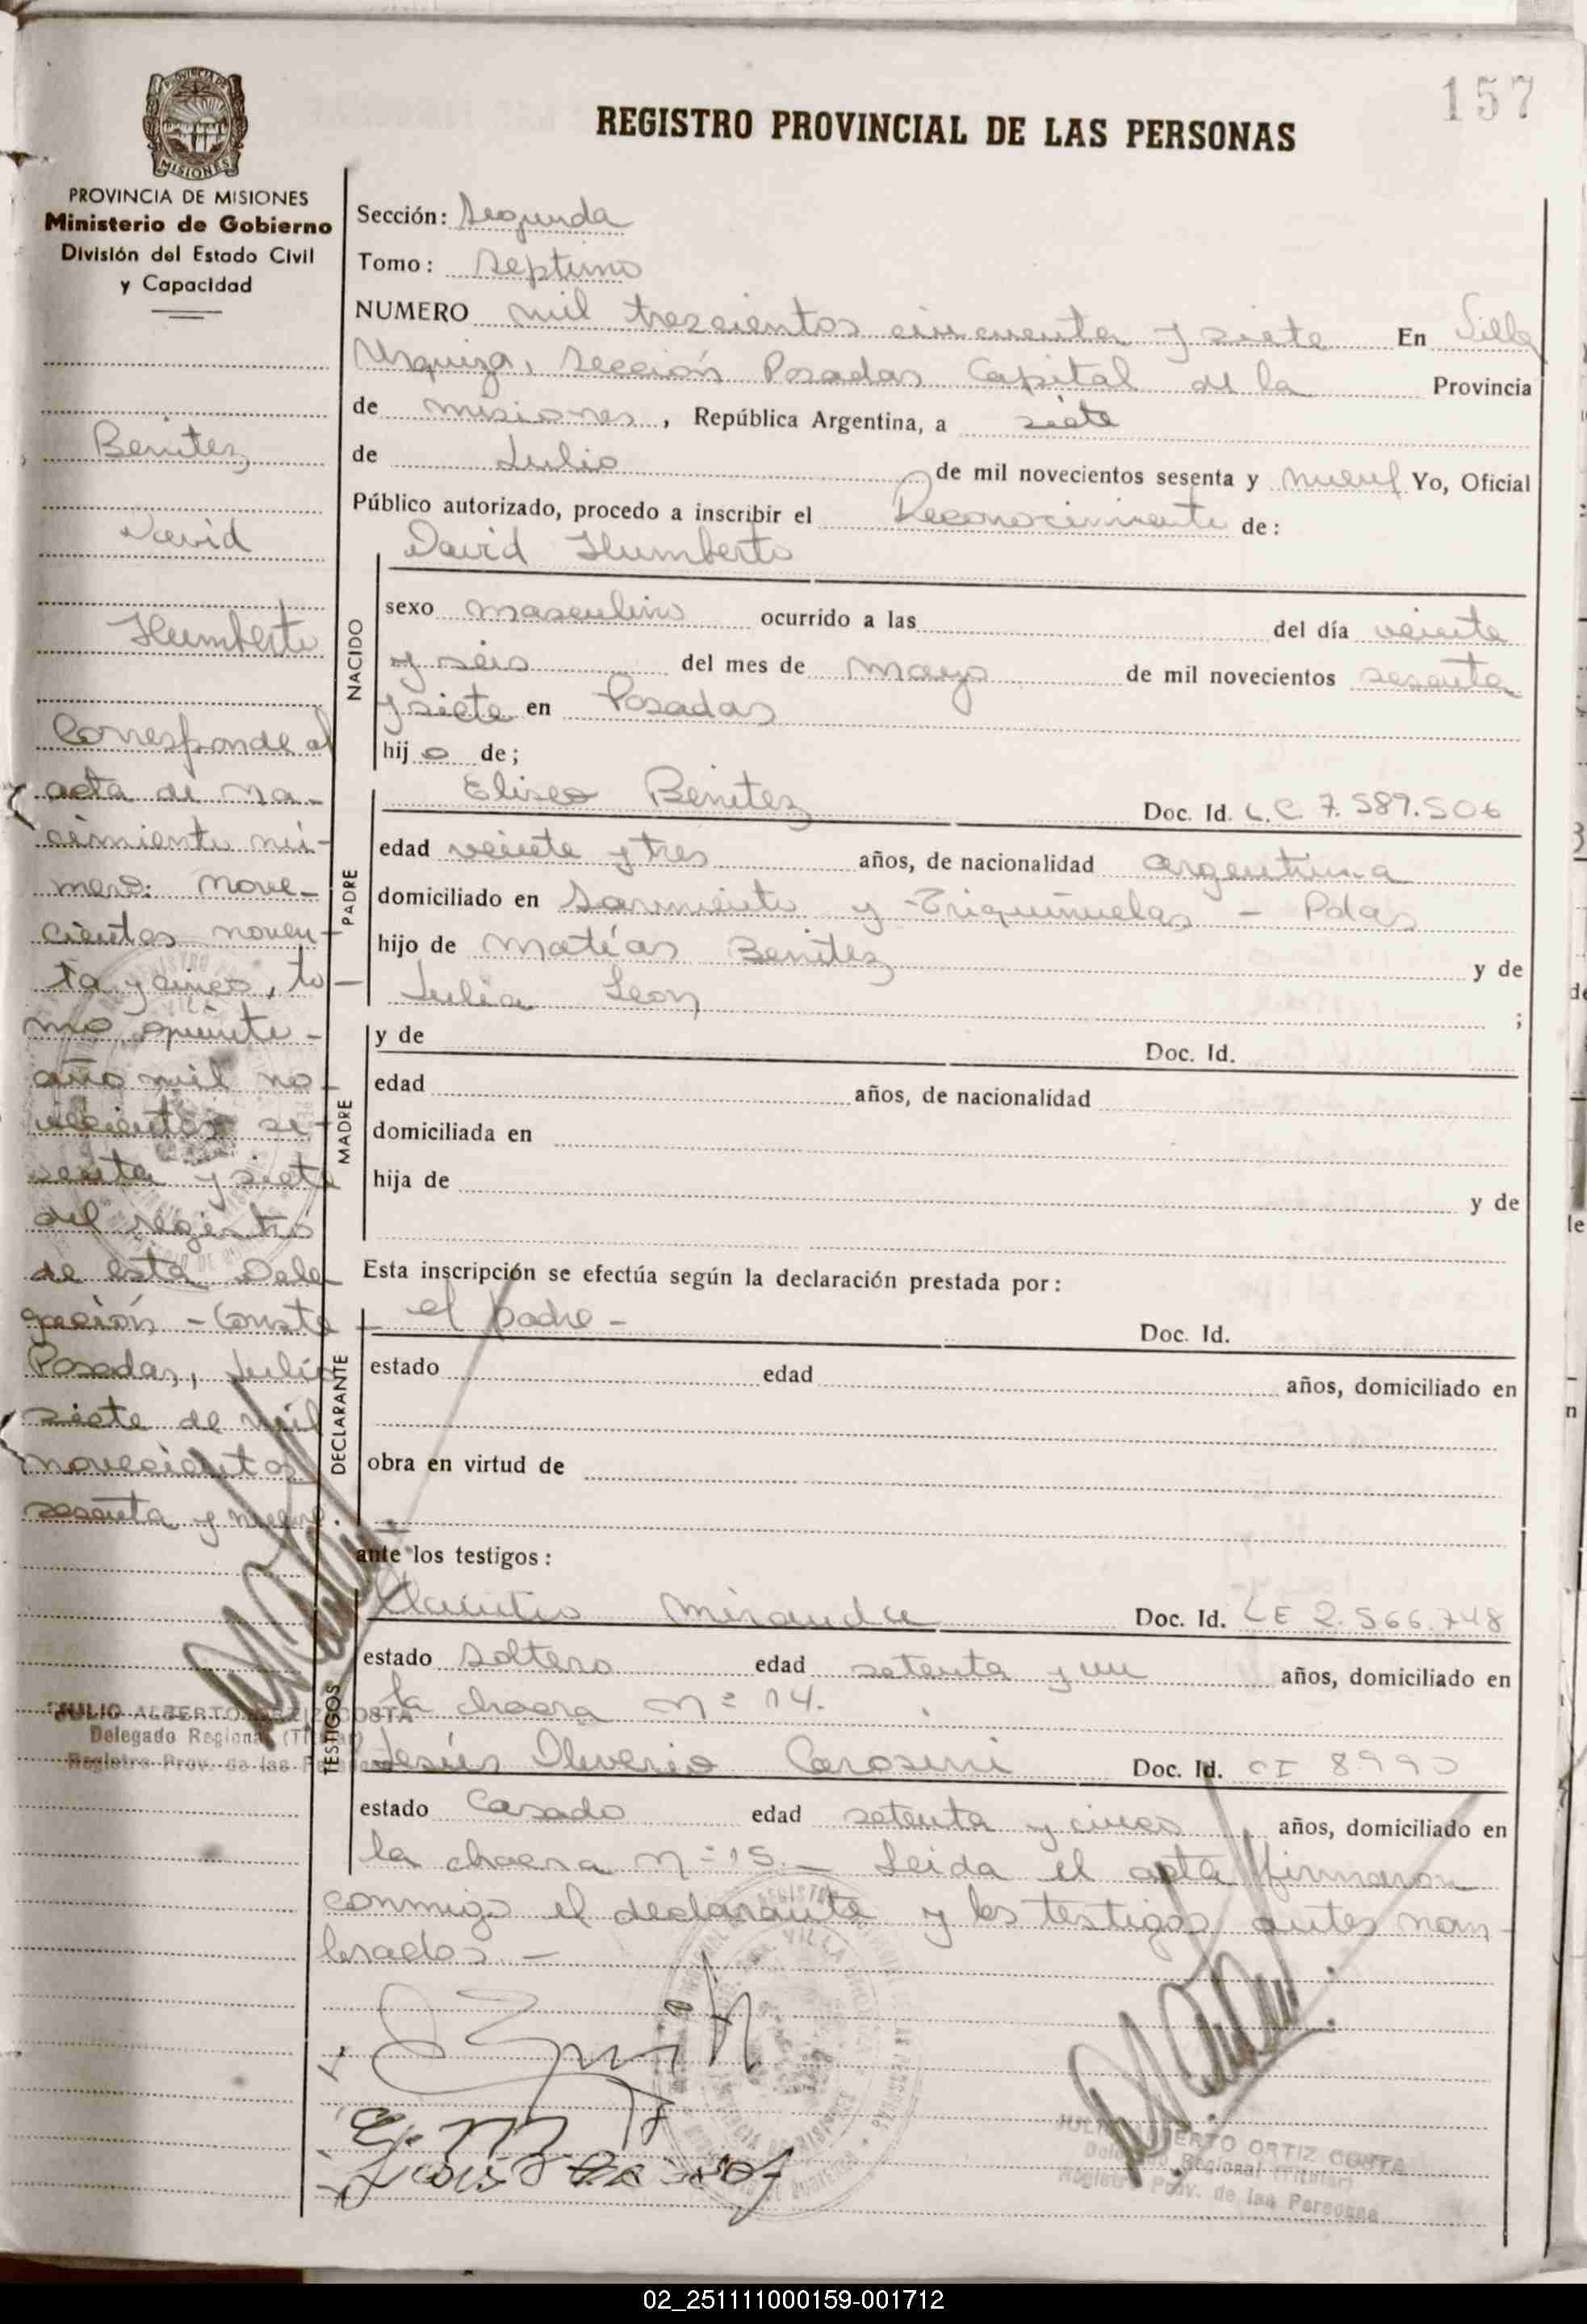 157
REGISTRO PROVINCIAL DE LAS PERSONAS
PROVINCIA DE MISIONES
Ministerio de Gobierno
División del Estado Civil
y Capacidad
Benitez
David
Humberto
Corresponde al
acta de na-
cimiento nú-
mero: nove-
cientos noven-
ta y cinco, to-
mo quinto-
año mil no-
vecientos se-
senta y siete
del registro
de esta Dele-
gación - Conste
Posadas, Julio
siete de mil
novecientos
sesenta y nueve.
JULIO ALBERTO ORTIZ COSTA
Delegado Regional (Titular)
Registro Prov. de las Personas
Sección: Segunda
Tomo: septimo
NUMERO mil trescientos cincuenta y siete En Villa
Urquiza, Sección Posadas Capital de la Provincia
de misiones, República Argentina, a siete
de Julio de mil novecientos sesenta y nueve Yo, Oficial
Público autorizado, procedo a inscribir el Reconocimiento de:
David Humberto
NACIDO
sexo masculino ocurrido a las del día veinte
y seis del mes de mayo de mil novecientos sesenta
y siete en Posadas
hijo de;
PADRE
Eliseo Benitez Doc. Id. L.C 7.589.506
edad veinte y tres años, de nacionalidad argentina
domiciliado en Sarmiento y Trinquiñuelas - Pdas
hijo de Matías Benitez y de
Julia Leon ;
MADRE
y de Doc. Id.
edad años, de nacionalidad
domiciliada en
hija de y de
Esta inscripción se efectúa según la declaración prestada por:
DECLARANTE
el padre - Doc. Id.
estado edad años, domiciliado en
obra en virtud de
ante los testigos:
TESTIGOS
Miranda Doc. Id. LE 2.566.748
estado Soltero edad setenta y un años, domiciliado en
la chacra nº 14.
Jesús Oliverio Carosini Doc. Id. CI
estado Casado edad setenta y cinco años, domiciliado en
la chacra nº 15. - Leida el acta firmaron
conmigo el declarante y los testigos antes nom-
brados. -
JULIO ALBERTO ORTIZ COSTA
Delegado Regional (Titular)
Registro Prov. de las Personas
02_251111000159-001712